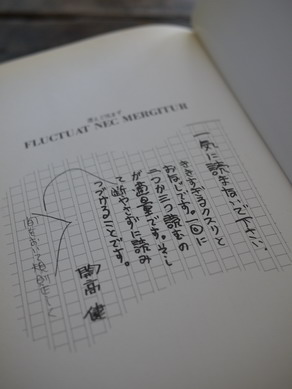 漂えど沈まず
FLUCTUAT NEC MERGITUR
一気に読まないで下さい。
ききすぎるクスリと
おなじです。一回に
二つか三つ読むの
が適量です。そし
て断やさずに読み
つづけることです。
開高 健